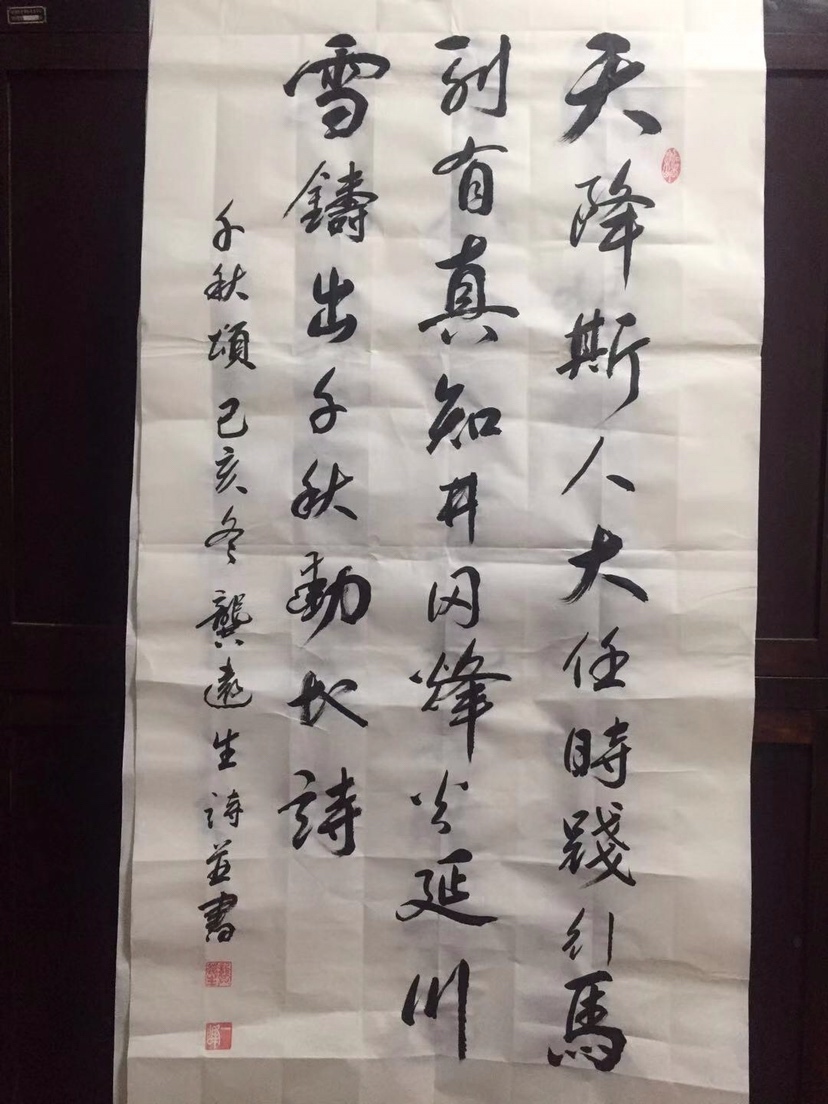 天降斯人大任時踐行馬
列有真知井冈烽火延川
雪鑄出千秋動长詩
千秋頌己亥冬龔遠生詩並書